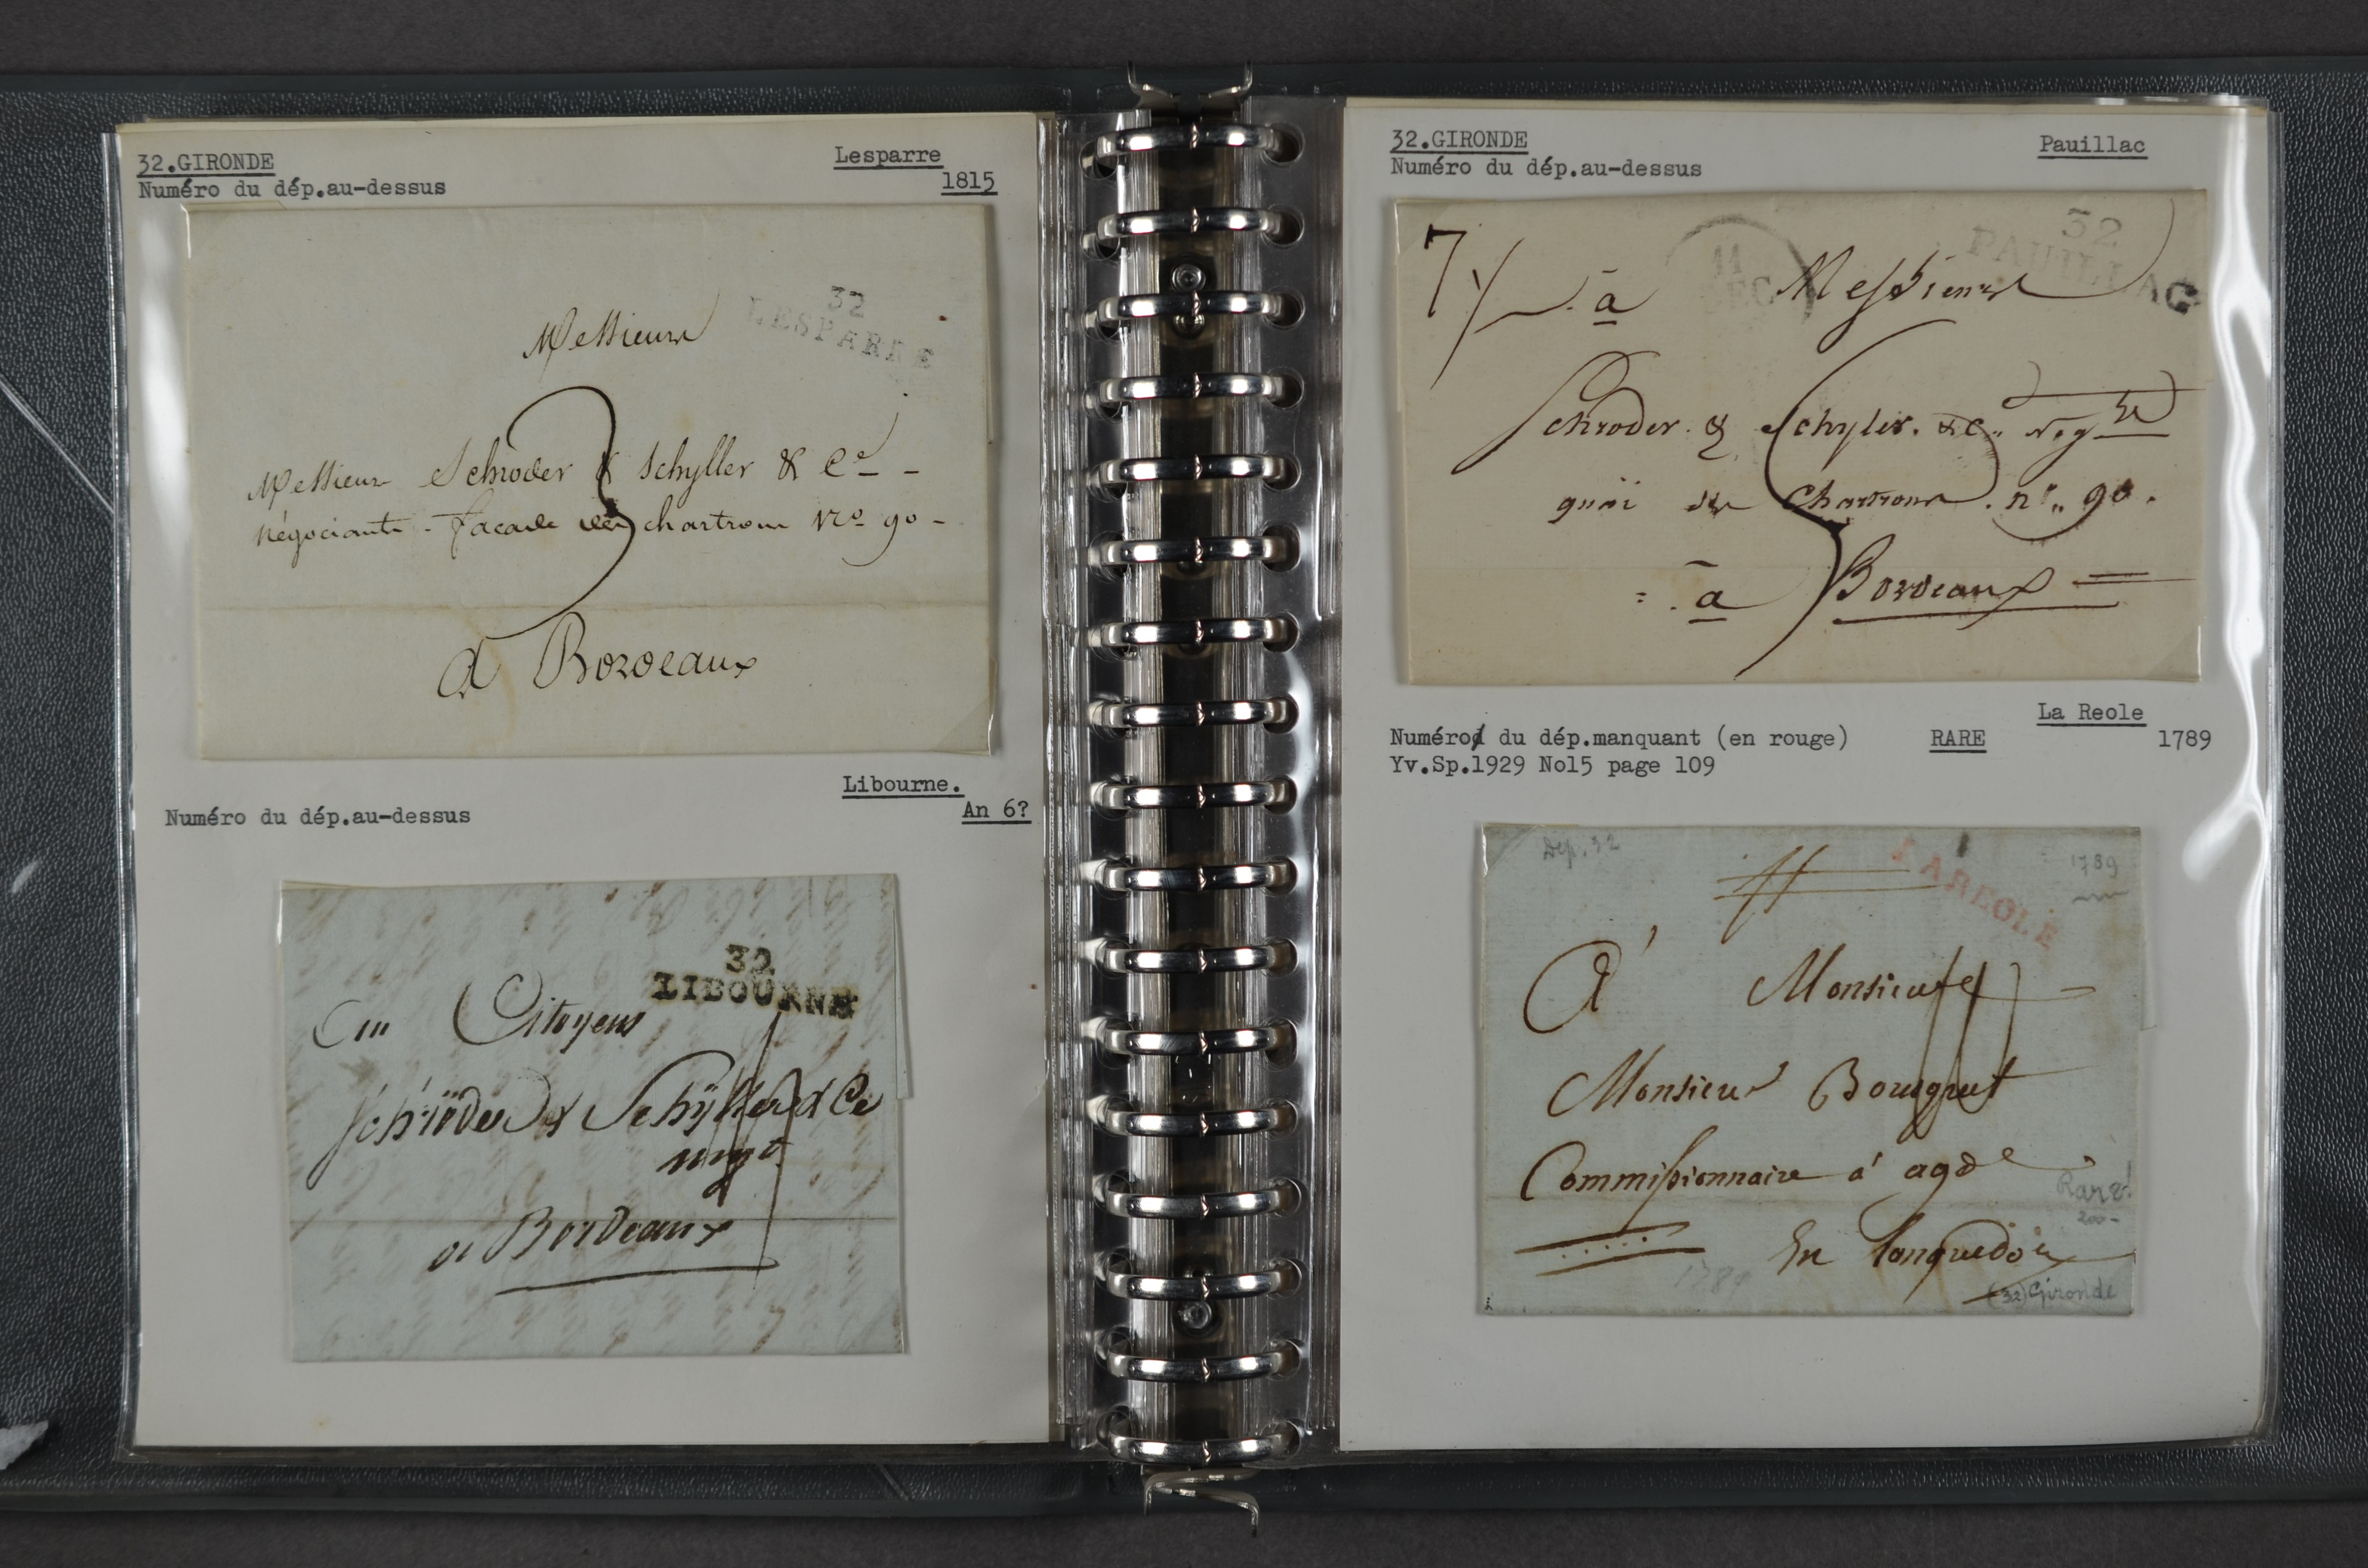 32.GIRONDE
Numéro du dép.au-dessus
Lesparre
1815
32
LESPARRE
Messieurs
Messieurs Schroder & Schyller & Ce
négociants - facade des chartrons No 90 -
a Bordeaux
Libourne.
An 6?
Numéro du dép.au-dessus
32
LIBOURNE
Citoyens
Schröder & Schÿller & Ce
negt
a Bordeaux
32.GIRONDE
Numéro du dép.au-dessus
Pauillac
32
PAUILLAC
11
DEC
à Messieurs
Schroder & Schyler. &c.. neg
quai des Chartrons. n°.. 90.
= . à Bordeaux =
La Reole
Numéro du dép.manquant (en rouge) RARE 1789
Yv.Sp.1929 No15 page 109
Dep. 32
LAREOLE
1789
A Monsieur
Monsieur Bousquet
Commissionnaire à agde
Rare!
200-
En Languedoc
1789
(32) Gironde